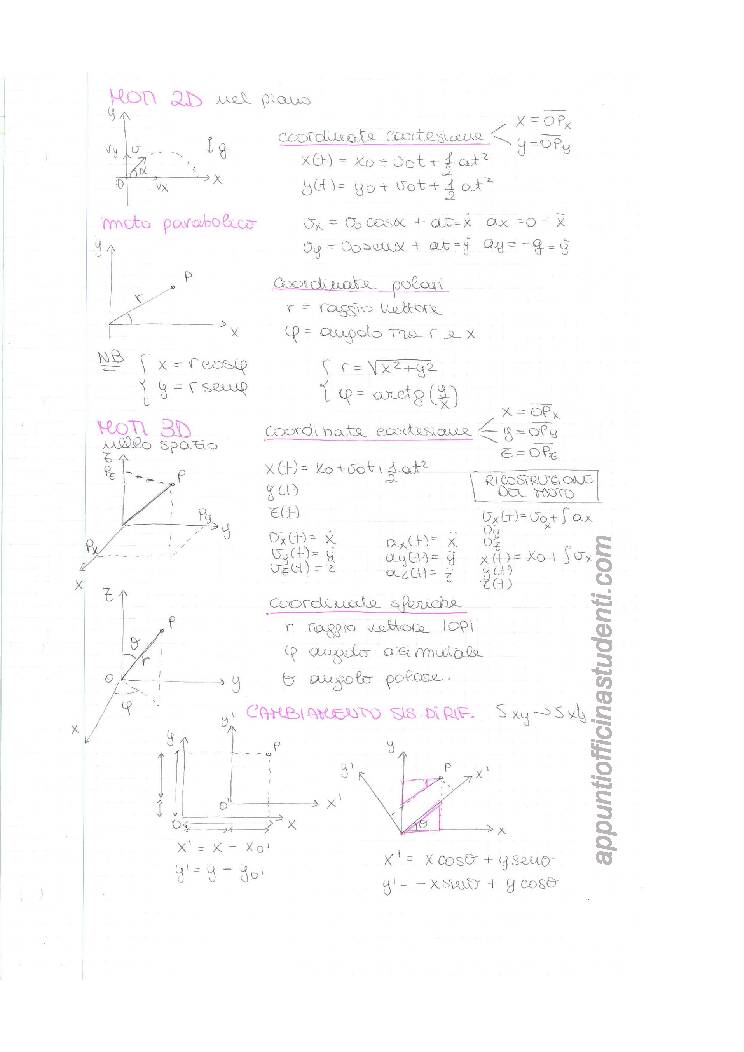 MOTI 2D nel piano
coordinate cartesiane
x = OPx
y = OPy
y
vy
v
α
O
vx
x
g
x(t) = x0 + v0t + 1/2 at²
y(t) = y0 + v0t + 1/2 at²
moto parabolico
vx = v0 cosα + at = ẋ ax = 0 = ẍ
vy = v0 senα + at = ẏ ay = -g = ÿ
y
P
r
x
coordinate polari
r = raggio vettore
φ = angolo tra r e x
NB
x = r cosφ
y = r senφ
r = √x²+y²
φ = arctg (y/x)
MOTI 3D
nello spazio
coordinate cartesiane
x = OPx
y = OPy
z = OPz
z
Pz
P
Py
y
Px
x
x(t) = x0 + v0t + 1/2 at²
y(t)
z(t)
RICOSTRUZIONE
DEL MOTO
vx(t) = ẋ
vy(t) = ẏ
vz(t) = ż
ax(t) = ẍ
ay(t) = ÿ
az(t) = z̈
vx(t) = v0x + ∫ ax
vy
vz
x(t) = x0 + ∫ vx
y(t)
z(t)
z
P
θ
r
O
y
φ
x
coordinate sferiche
r raggio vettore |OP|
φ angolo azimutale
θ angolo polare.
CAMBIAMENTO SIS. DI RIF. Sxy → Sx'y'
y
y'
P
O'
x'
O
x
x' = x - x0'
y' = y - y0'
y
y'
P
x'
θ
x
x' = x cosθ + y senθ
y' = -x senθ + y cosθ
appuntiofficinastudenti.com